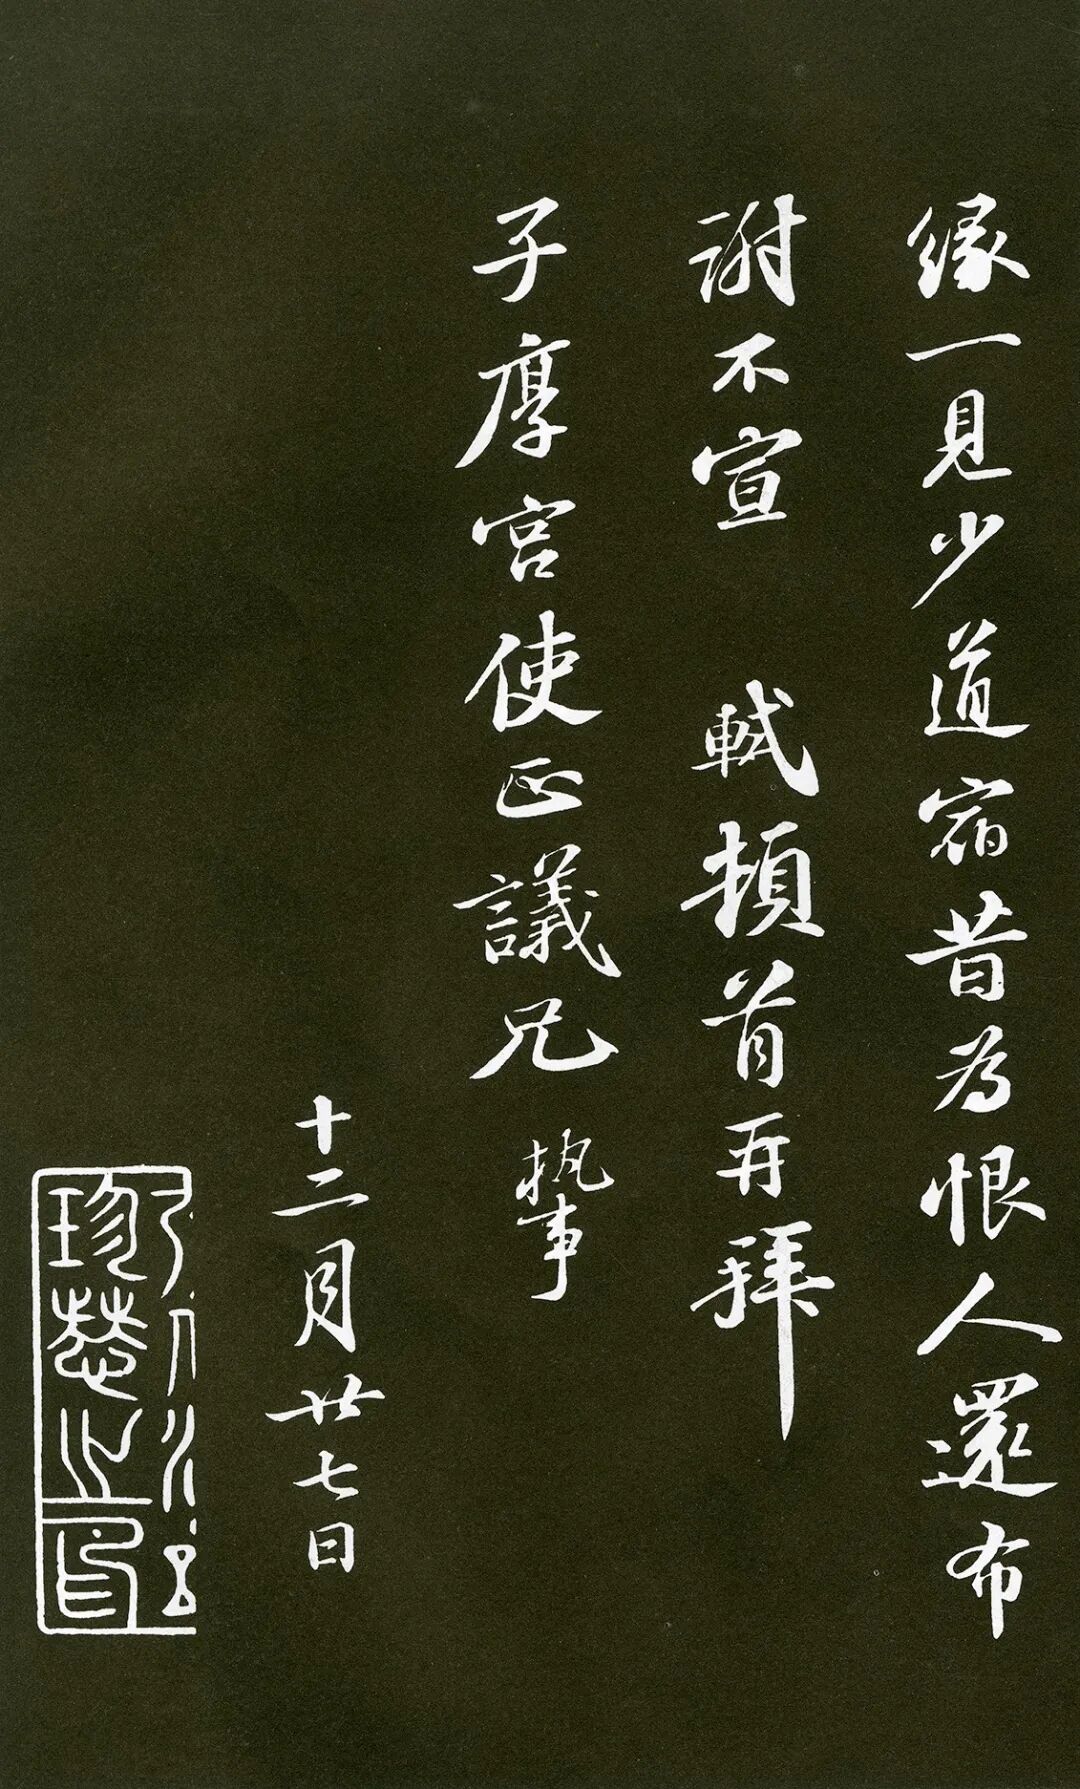 緣一見少道宿昔為恨人還布
謝不宣　軾頓首再拜
子厚宮使正議兄執事
十二月廿七日